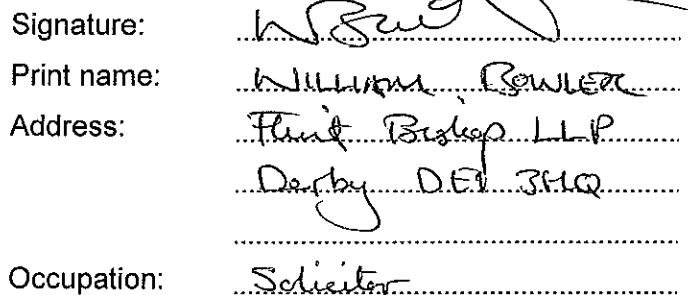 Signature:
Print name: WILLIAM BOWLER
Address: Flint Bishop LLP
Derby DE1 3HQ
Occupation: Solicitor